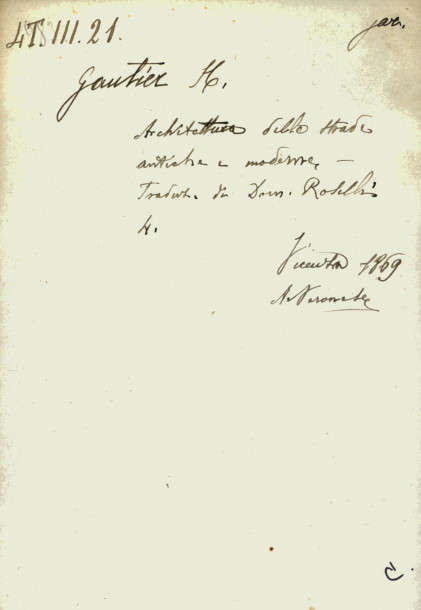 4T.III.21.
Gautier H.
Architettura delle strade
antiche e moderne, —
Traduz. da Dom. Roselli
4.
Vicenza 1769
A. Veronese